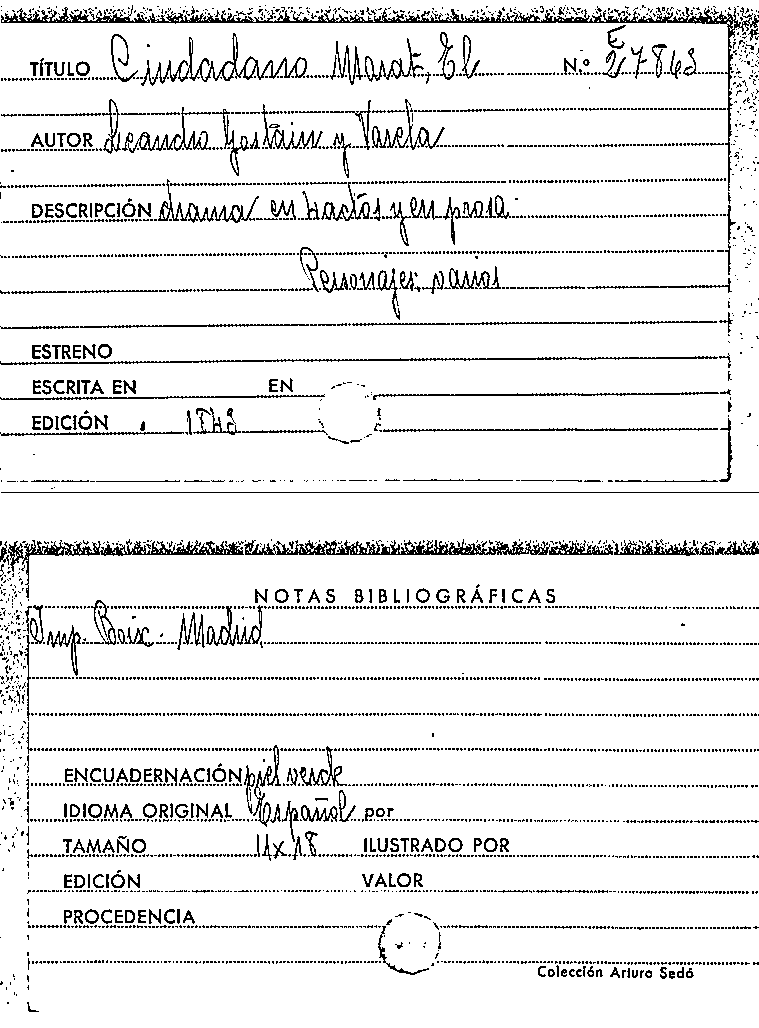 TÍTULO Ciudadano Marat, El N.º E
27863
AUTOR Leandro Gostáin y Varela
DESCRIPCIÓN drama en 4 actos y en prosa.
Personajes: varios
ESTRENO
ESCRITA EN EN
EDICIÓN
NOTAS BIBLIOGRÁFICAS
Imp. Boix. Madrid
ENCUADERNACIÓN piel verde
IDIOMA ORIGINAL Español por
TAMAÑO 11x18 ILUSTRADO POR
EDICIÓN VALOR
PROCEDENCIA
Colección Arturo Sedó